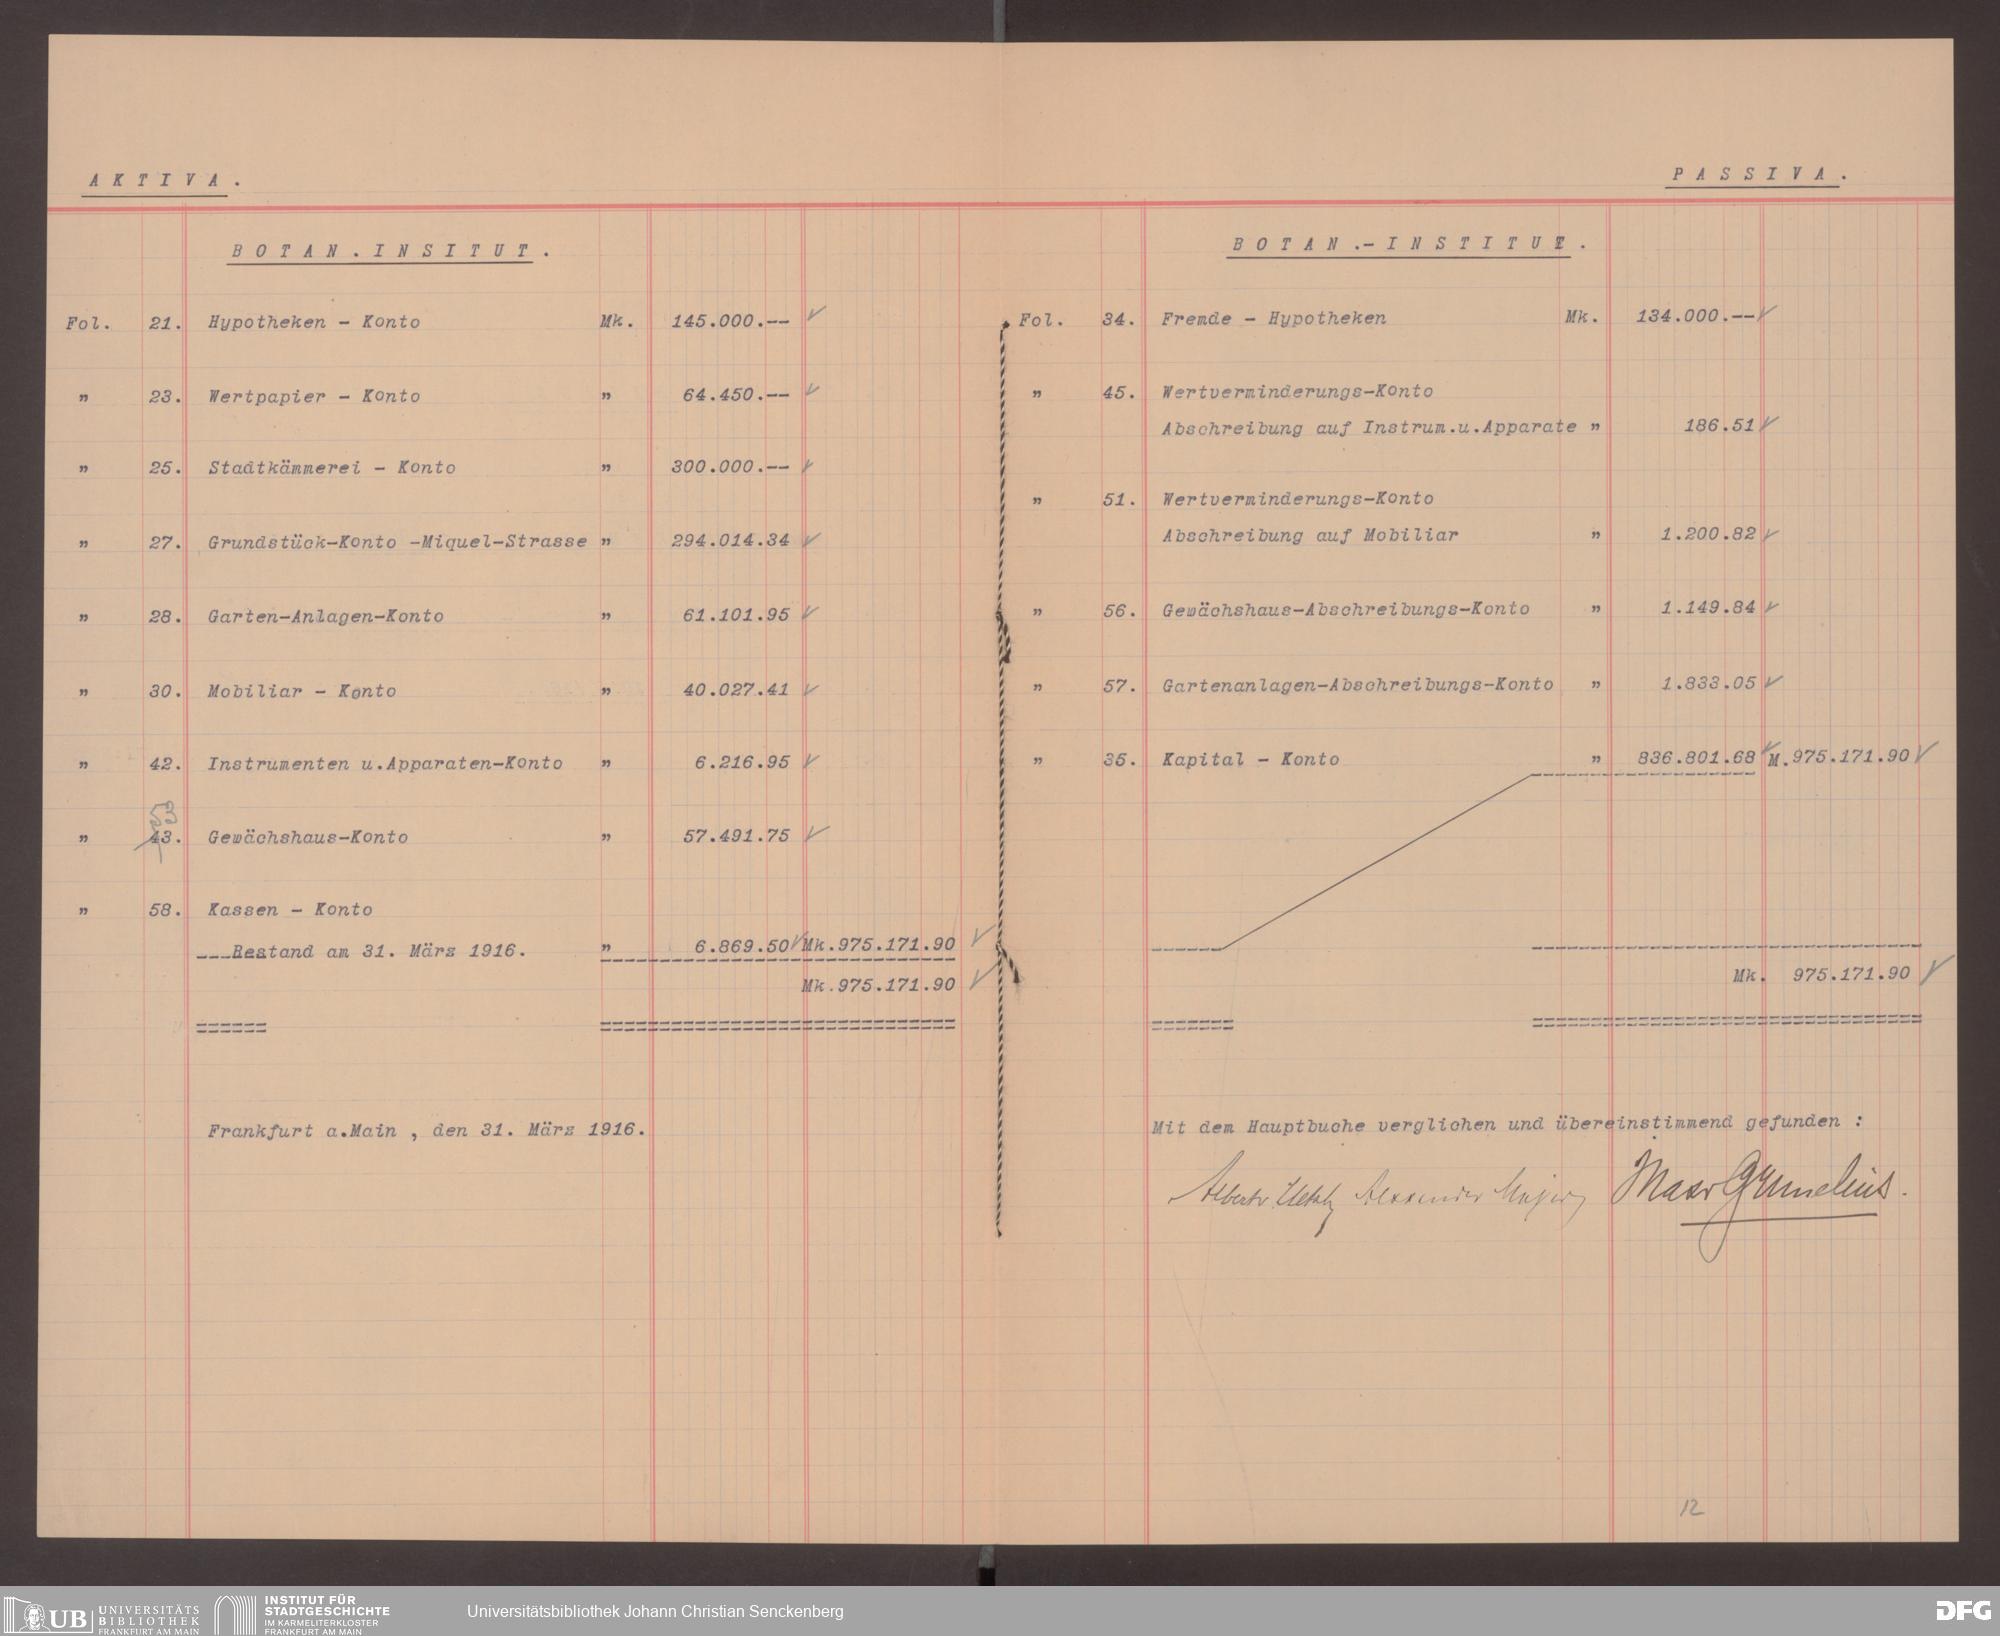 AKTIVA.
BOTAN.INSITUT.
Fol. 21. Hypotheken - Konto Mk. 145.000.--
" 23. Wertpapier - Konto " 64.450.--
" 25. Stadtkämmerei - Konto " 300.000.--
" 27. Grundstück-Konto -Miquel-Strasse " 294.014.34
" 28. Garten-Anlagen-Konto " 61.101.95
" 30. Mobiliar - Konto " 40.027.41
" 42. Instrumenten u.Apparaten-Konto " 6.216.95
53
" 43. Gewächshaus-Konto " 57.491.75
" 58. Kassen - Konto
Bestand am 31. März 1916. " 6.869.50 Mk.975.171.90
Mk.975.171.90
Frankfurt a.Main , den 31. März 1916.
PASSIVA.
BOTAN.-INSTITUT.
Fol. 34. Fremde - Hypotheken Mk. 134.000.--
" 45. Wertverminderungs-Konto
Abschreibung auf Instrum.u.Apparate " 186.51
" 51. Wertverminderungs-Konto
Abschreibung auf Mobiliar " 1.200.82
" 56. Gewächshaus-Abschreibungs-Konto " 1.149.84
" 57. Gartenanlagen-Abschreibungs-Konto " 1.833.05
" 35. Kapital - Konto " 836.801.68 M.975.171.90
Mk. 975.171.90
Mit dem Hauptbuche verglichen und übereinstimmend gefunden :
Alexander Majer Max Grunelius.
12
UB UNIVERSITÄTS
BIBLIOTHEK
FRANKFURT AM MAIN
INSTITUT FÜR
STADTGESCHICHTE
IM KARMELITERKLOSTER
FRANKFURT AM MAIN
Universitätsbibliothek Johann Christian Senckenberg
DFG